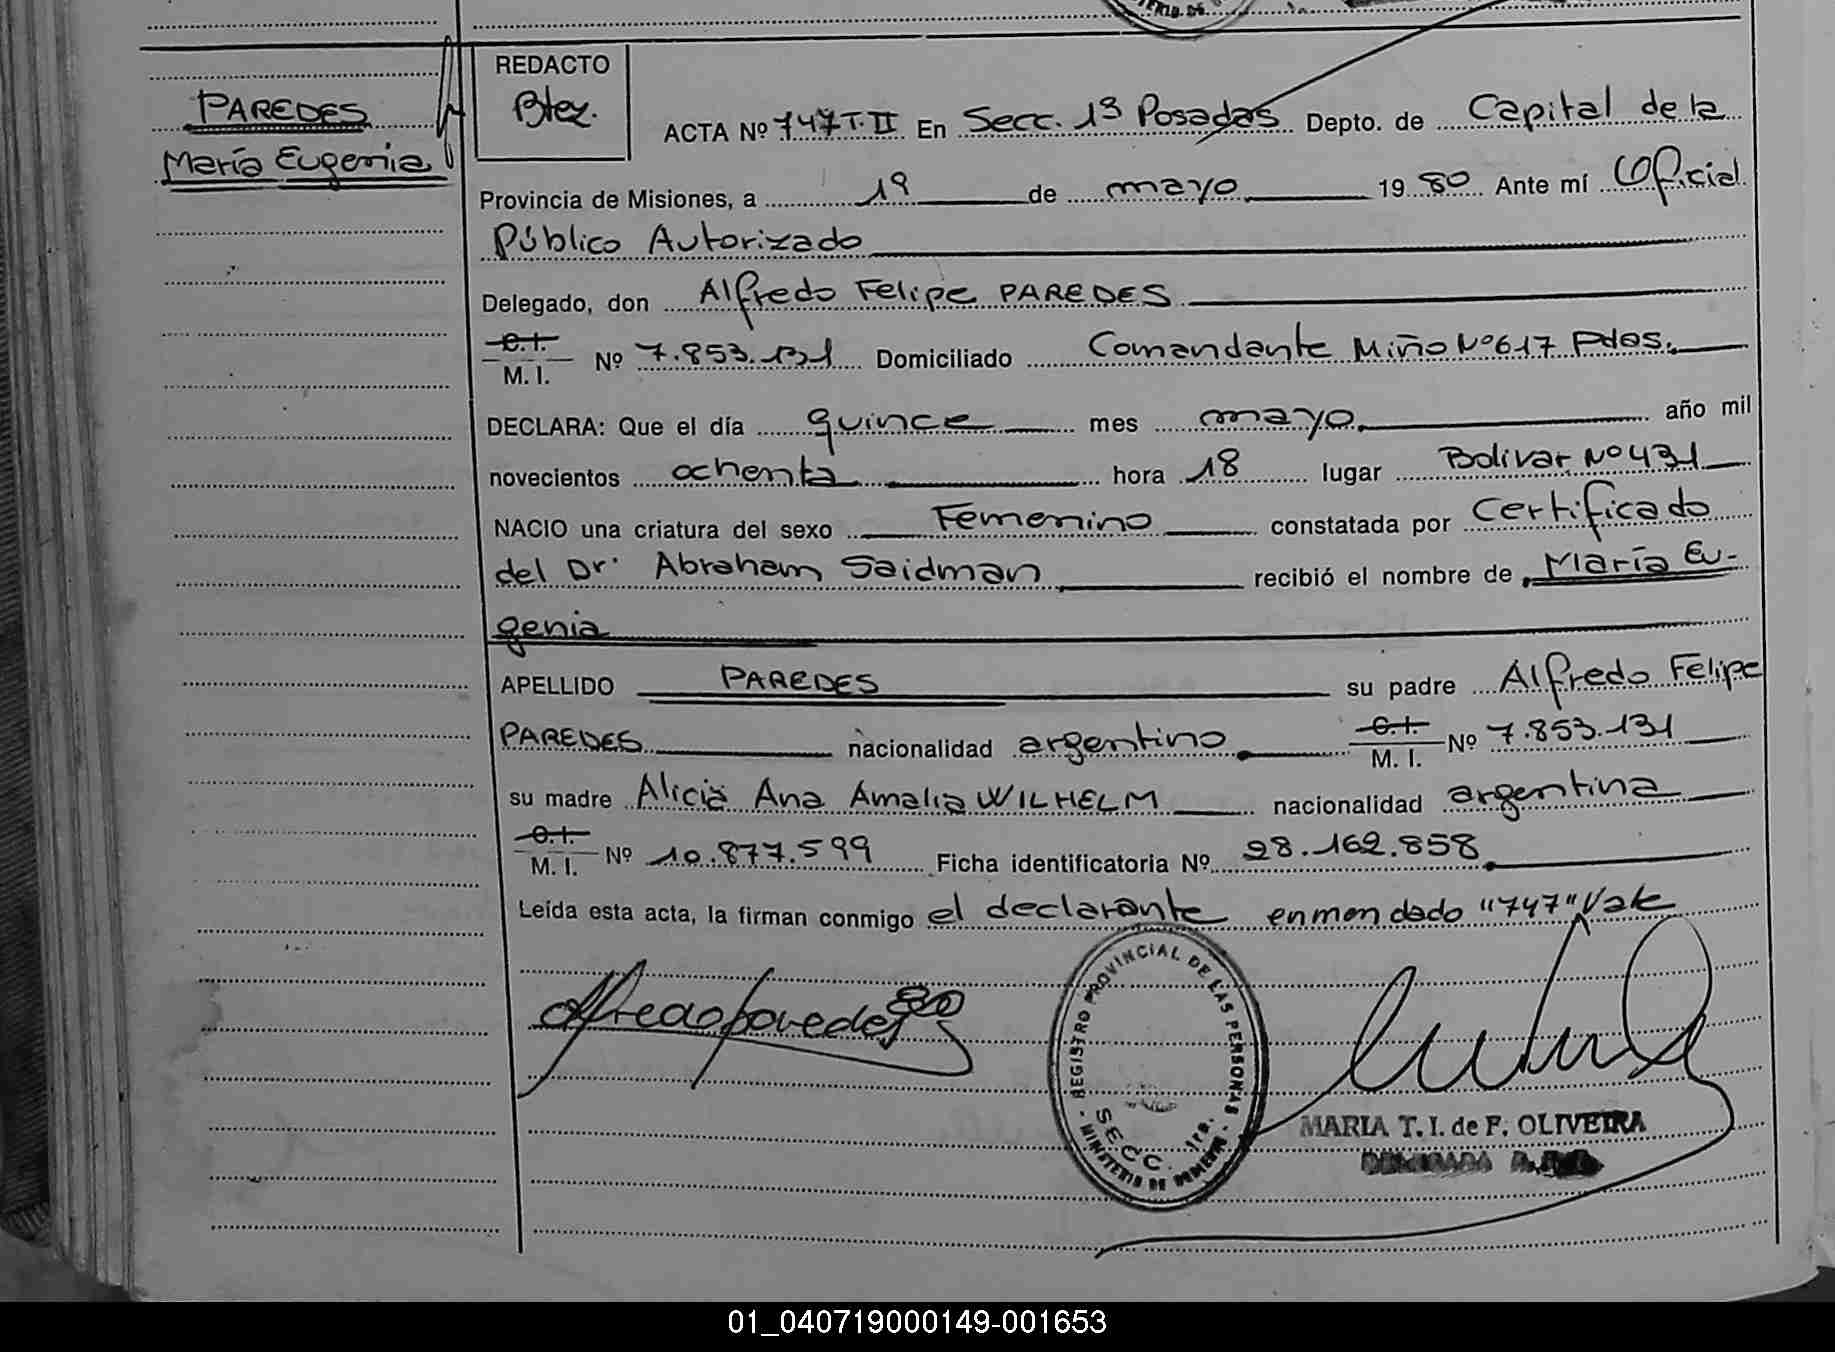 PAREDES
María Eugenia
REDACTO
Btez.
ACTA Nº 747 T. II En Secc. 1ª Posadas Depto. de Capital de la
Provincia de Misiones, a 19 de mayo 19 80 Ante mí Oficial
Público Autorizado
Delegado, don Alfredo Felipe PAREDES
C.I.
M. I. Nº 7.853.131 Domiciliado Comandante Miño Nº 617 Pdas.
DECLARA: Que el día quince mes mayo año mil
novecientos ochenta hora 18 lugar Bolivar Nº 431
NACIO una criatura del sexo Femenino constatada por Certificado
del Dr. Abraham Saidman recibió el nombre de María Eu-
genia
APELLIDO PAREDES su padre Alfredo Felipe
PAREDES nacionalidad argentino C.I.
M. I. Nº 7.853.131
su madre Alicia Ana Amalia WILHELM nacionalidad argentina
C.I.
M. I. Nº 10.877.599 Ficha identificatoria Nº 28.162.858
Leída esta acta, la firman conmigo el declarante enmendado "747" Vale
REGISTRO PROVINCIAL DE LAS PERSONAS
SECC. 1ra.
MINISTERIO DE
MARIA T. I. de F. OLIVEIRA
01_040719000149-001653